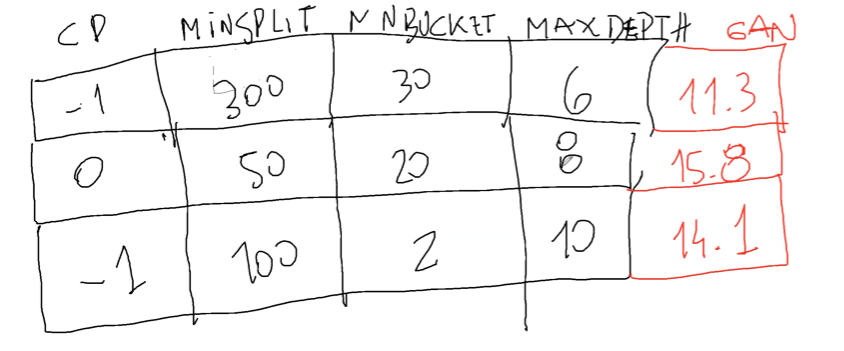 CP MINSPLIT MNBUCKET MAXDEPTH GAN
-1 300 30 6 11.3
0 50 20 8 15.8
-1 100 2 10 14.1